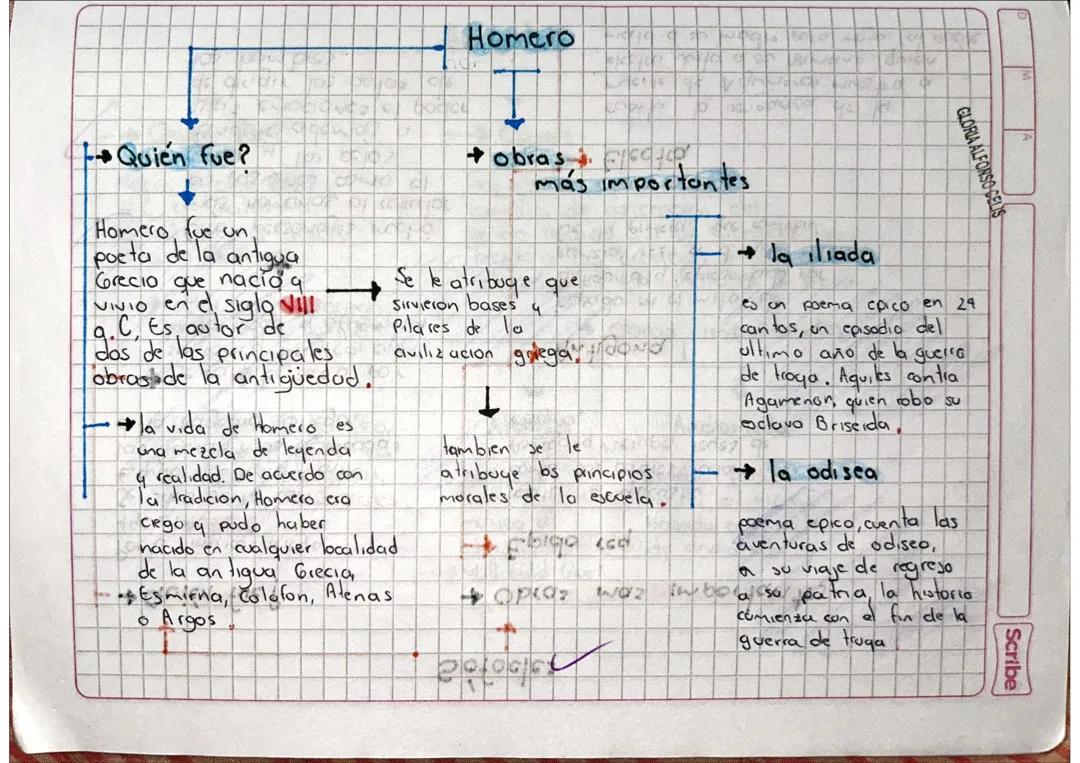 Homero
→ Quién fue?
Homero fue un
poeta de la antigua
Grecia que nació y
vivio en el siglo VIII
a.C, Es autor de
dos de las principales
obras de la antigüedad.
→ la vida de Homero es
una mezcla de leyenda
y realidad. De acuerdo con
la tradicion, Homero era
ciego y pudo haber
nacido en cualquier localidad
de la antigua Grecia,
→ Esmirna, Colofon, Atenas
o Argos.
Se le atribuye que
sirvieron bases y
pilares de la
civilizacion griega.
tambien se le
atribuye los principios
morales de la escuela.
→ obras
más importantes
→ la iliada
es un poema epico en 24
cantos, un episodio del
ultimo año de la guerra
de troya. Aquiles contra
Agamenon, quien robo su
esclava Briseida.
→ la odisea
poema epico, cuenta las
aventuras de odiseo,
a su viaje de regreso
a su patria, la historia
comienza con el fin de la
guerra de troya
GLORIA ALFONSO CELIS
D
M
A
Scribe